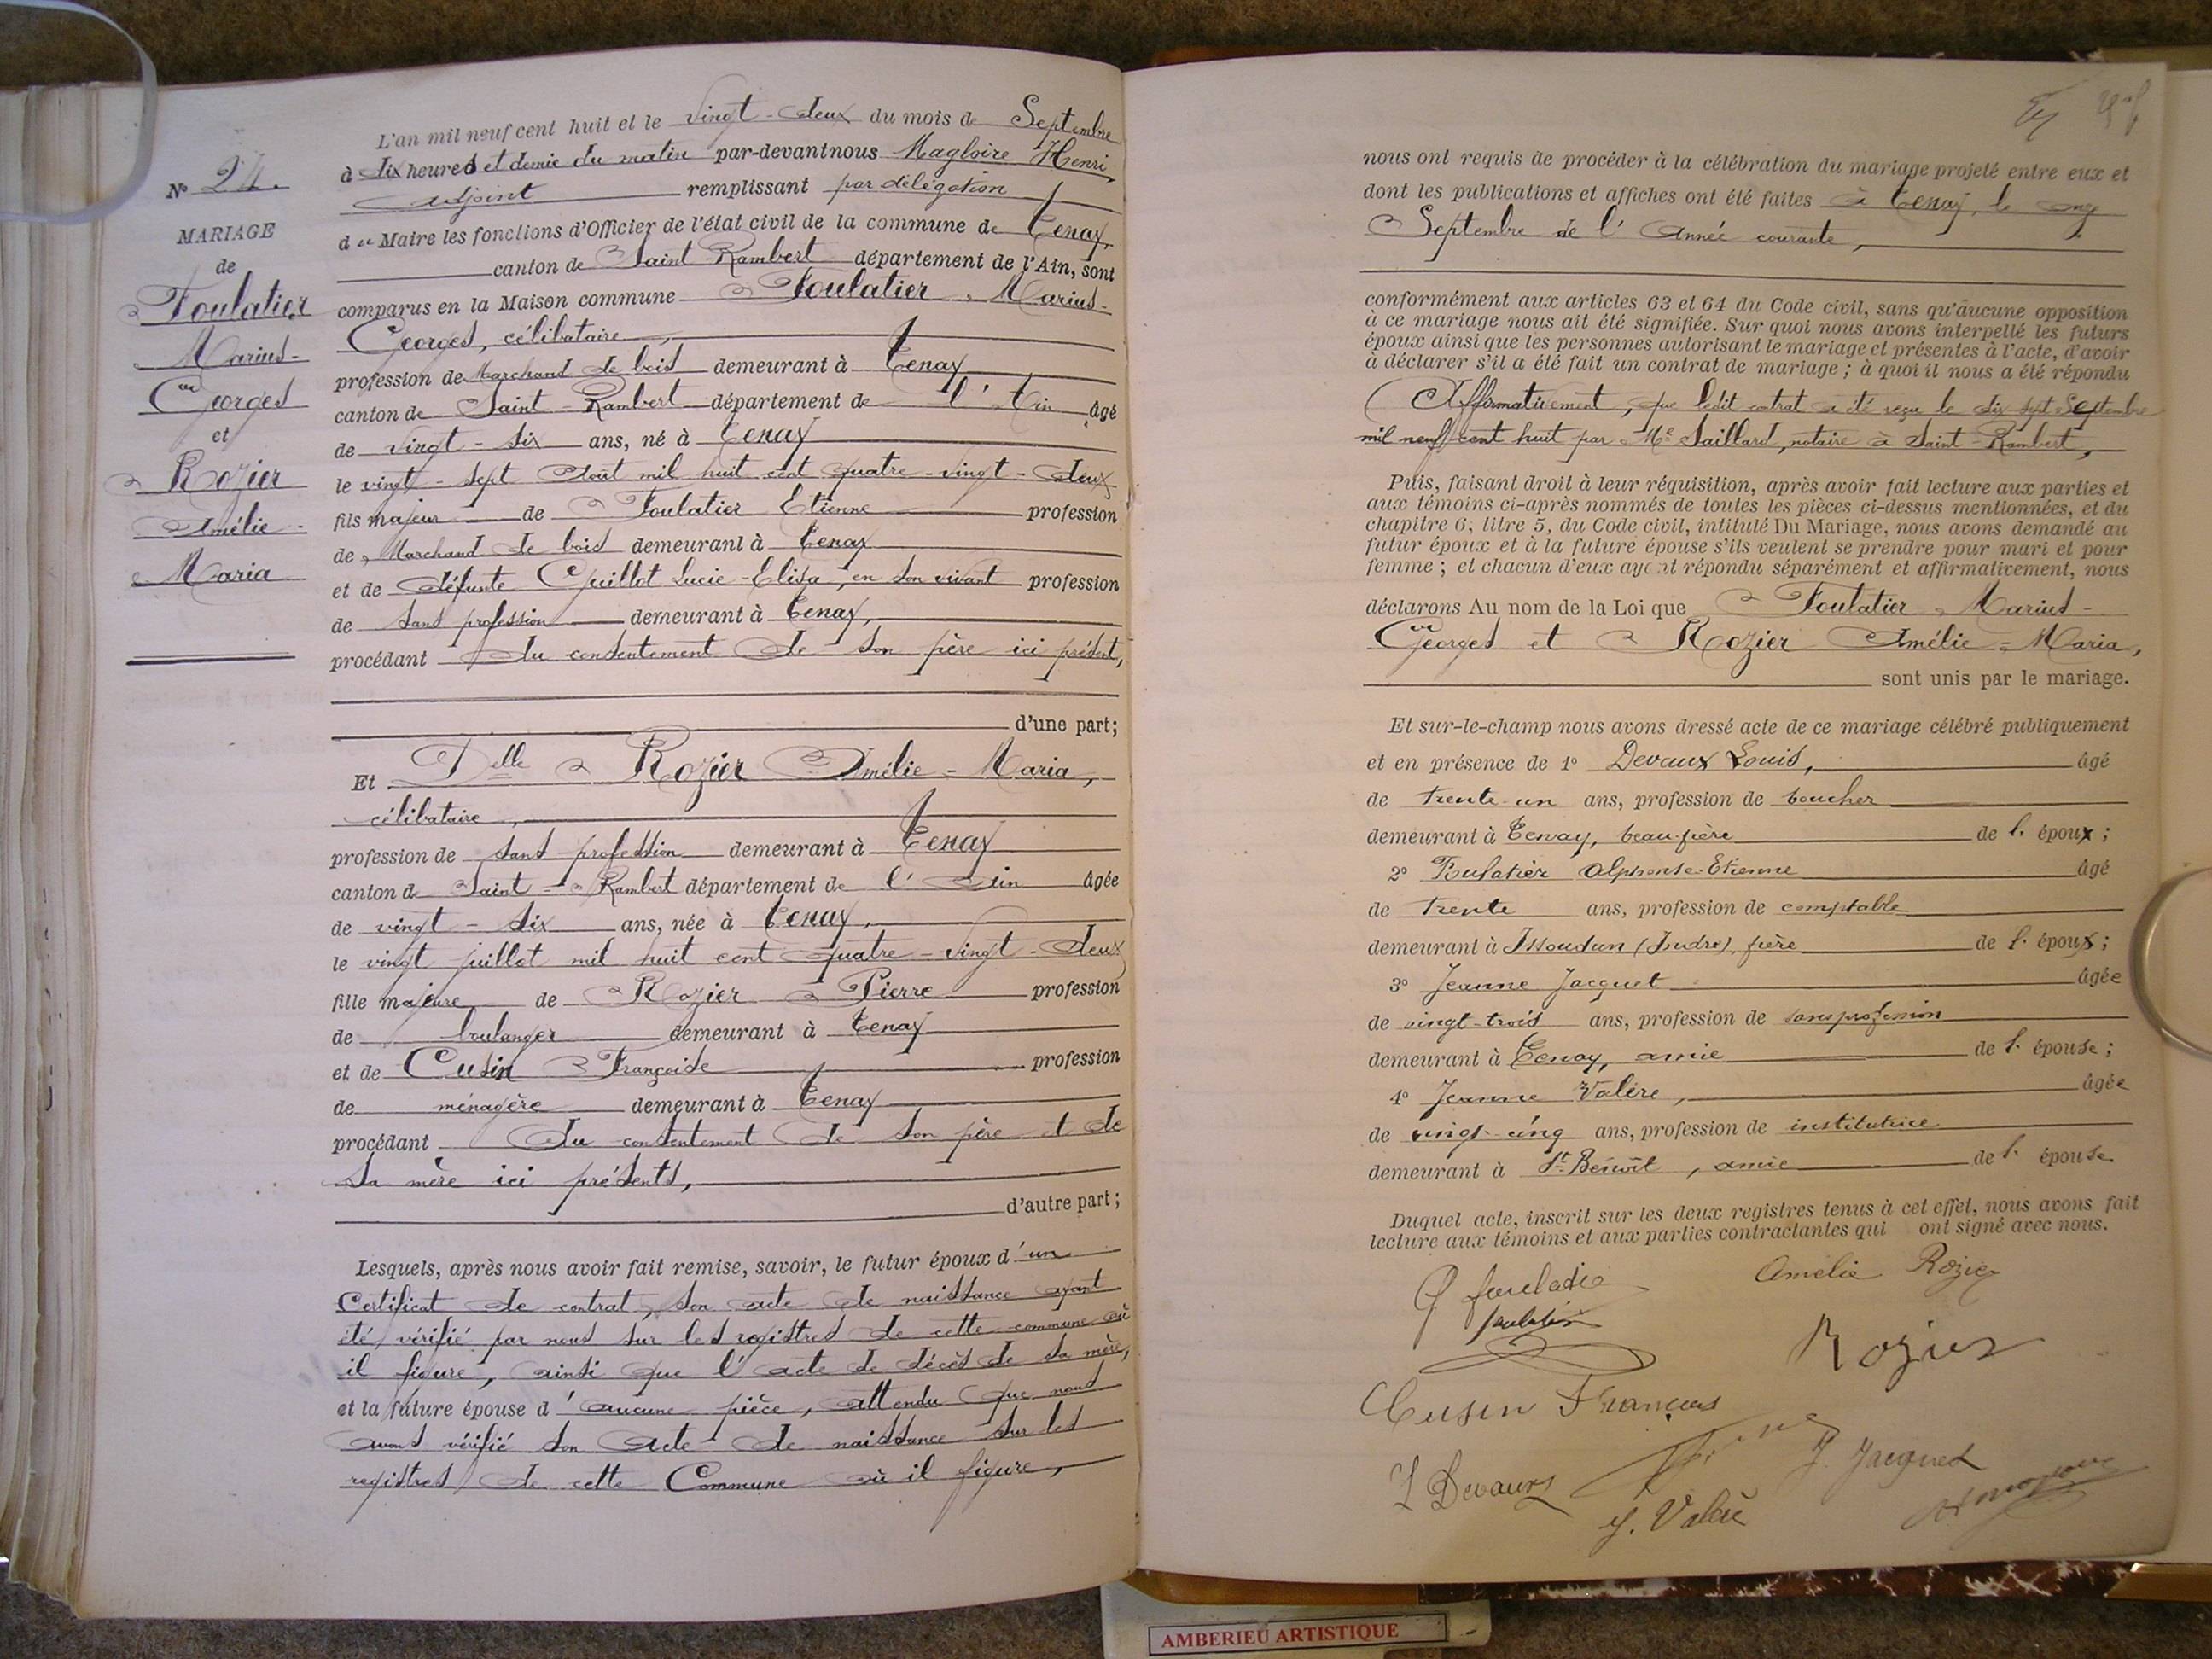 L'an mil neuf cent huit et le vingt-deux du mois de Septembre
à dix heures et demie du matin par-devant nous Magloire Henri,
adjoint remplissant par délégation
du Maire les fonctions d'Officier de l'état civil de la commune de Tenay,
canton de Saint Rambert département de l'Ain, sont
comparus en la Maison commune Foulatier Marius-
Georges, célibataire,
profession de Marchand de bois demeurant à Tenay
canton de Saint-Rambert département de l'Ain âgé
de vingt-six ans, né à Tenay
le vingt-sept Août mil huit cent quatre-vingt-deux
fils majeur de Foulatier Etienne profession
de Marchand de bois demeurant à Tenay
et de défunte Guillot Lucie-Elisa, en son vivant profession
de sans profession demeurant à Tenay,
procédant du consentement de son père ici présent,
d'une part;
Et Delle Rozier Amélie-Maria,
célibataire,
profession de sans profession demeurant à Tenay
canton de Saint-Rambert département de l'Ain âgée
de vingt-six ans, née à Tenay,
le vingt juillet mil huit cent quatre-vingt-deux
fille majeure de Rozier Pierre profession
de boulanger demeurant à Tenay
et de Cusin Françoise profession
de ménagère demeurant à Tenay
procédant du consentement de son père et de
sa mère ici présents,
d'autre part;
Lesquels, après nous avoir fait remise, savoir, le futur époux d'un
Certificat de contrat, son acte de naissance ayant
été vérifié par nous sur les registres de cette commune où
il figure, ainsi que l'acte de décès de sa mère,
et la future épouse d'aucune pièce, attendu que nous
avons vérifié son acte de naissance sur les
registres de cette Commune où il figure,
No 24.
MARIAGE
de
Foulatier
Marius-
Georges
et
Rozier
Amélie-
Maria
nous ont requis de procéder à la célébration du mariage projeté entre eux et
dont les publications et affiches ont été faites à Tenay, le
Septembre de l'Année courante,
conformément aux articles 63 et 64 du Code civil, sans qu'aucune opposition
à ce mariage nous ait été signifiée. Sur quoi nous avons interpellé les futurs
époux ainsi que les personnes autorisant le mariage et présentes à l'acte, d'avoir
à déclarer s'il a été fait un contrat de mariage; à quoi il nous a été répondu
Affirmativement, que ledit contrat a été reçu le dix-sept Septembre
mil neuf cent huit par Me Saillard, notaire à Saint-Rambert,
Puis, faisant droit à leur réquisition, après avoir fait lecture aux parties et
aux témoins ci-après nommés de toutes les pièces ci-dessus mentionnées, et du
chapitre 6, titre 5, du Code civil, intitulé Du Mariage, nous avons demandé au
futur époux et à la future épouse s'ils veulent se prendre pour mari et pour
femme; et chacun d'eux ayant répondu séparément et affirmativement, nous
déclarons Au nom de la Loi que Foulatier Marius-
Georges et Rozier Amélie-Maria,
sont unis par le mariage.
Et sur-le-champ nous avons dressé acte de ce mariage célébré publiquement
et en présence de 1o Devaux Louis, âgé
de trente-un ans, profession de boucher
demeurant à Tenay, beau-frère de l'époux;
2o Foulatier Alphonse-Etienne âgé
de trente ans, profession de comptable
demeurant à Issoudun (Indre), frère de l'époux;
3o Jeanne Jacquet âgée
de vingt-trois ans, profession de sans profession
demeurant à Tenay, amie de l'épouse;
4o Jeanne Valère, âgée
de vingt-cinq ans, profession de institutrice
demeurant à St-Benoît, amie de l'épouse.
Duquel acte, inscrit sur les deux registres tenus à cet effet, nous avons fait
lecture aux témoins et aux parties contractantes qui ont signé avec nous.
Amélie Rozier
Rozier
Cusin
L Devaux
J. Jacquet
J. Valère
AMBERIEU ARTISTIQUE